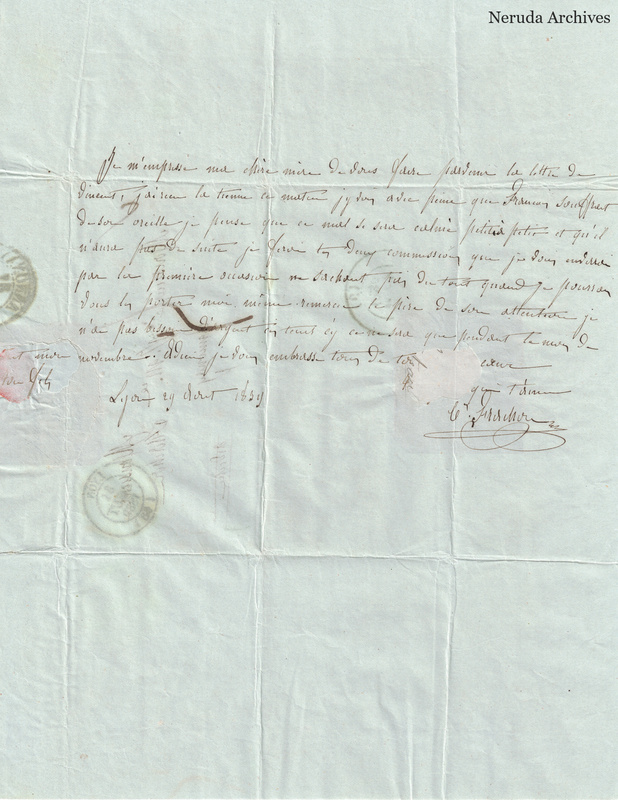 Neruda Archives
Je m'empresse ma chère mère de vous faire parvenir la lettre de
Vincent, j'ai reçu la tienne ce matin j'y vois avec peine que Francois souffrait
de son oreille je pense que ce mal se sera calmé petit à petit et qu'il
n'aura pas de suite je ferai tes deux commissions que je vous enverrai
par la première occasion ne sachant pas du tout quand je pourrai
vous les porter moi même remercie le père de son attention je
n'ai pas besoin d'argent ces jours cy ce ne sera que pendant le mois de
novembre. Adieu je vous embrasse tous de tout cœur
qui t'aime
Lyon 29 Aout 1839